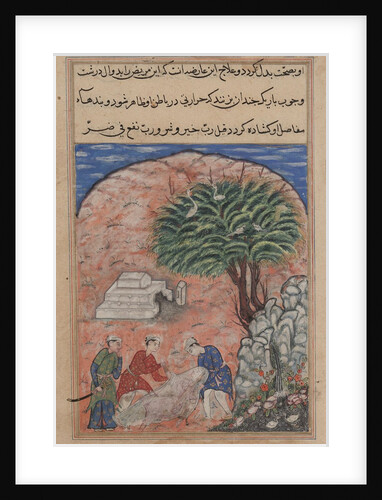 او بصحت بدل کردد و علاج این عارضه آنست که این مریض را بدوال درشت
و چوب باریک چندان بزنند که حرارتی در باطن او ظاهر شود و بندهاء
مفاصل او کشاده کردد قیل رب خیر و شر و رب نفع فی ضر